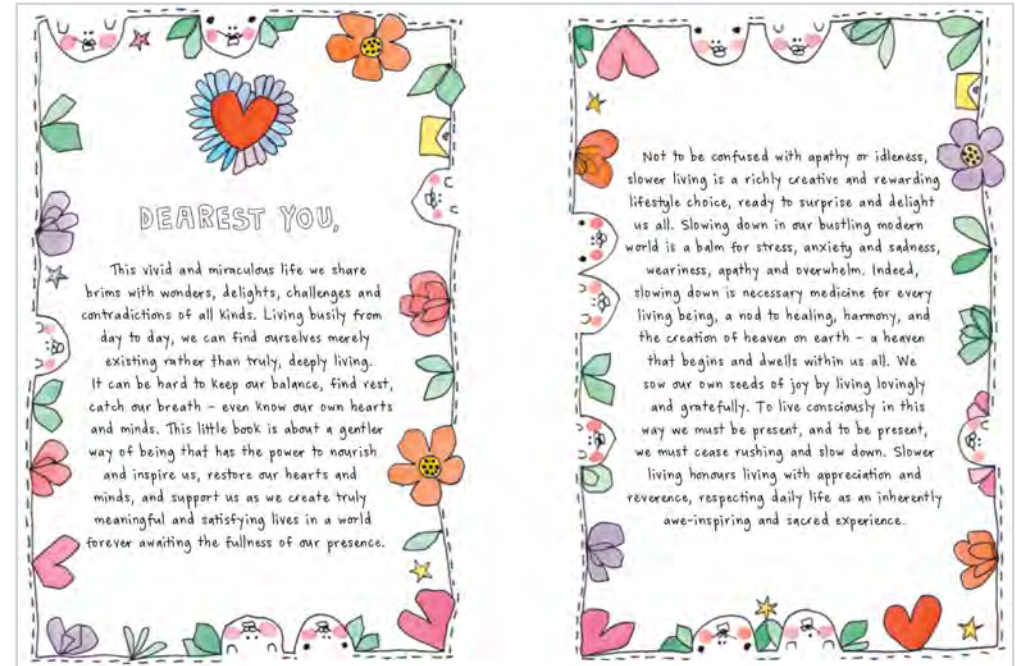 DEAREST YOU,
This vivid and miraculous life we share
brims with wonders, delights, challenges and
contradictions of all kinds. Living busily from
day to day, we can find ourselves merely
existing rather than truly, deeply living.
It can be hard to keep our balance, find rest,
catch our breath – even know our own hearts
and minds. This little book is about a gentler
way of being that has the power to nourish
and inspire us, restore our hearts and
minds, and support us as we create truly
meaningful and satisfying lives in a world
forever awaiting the fullness of our presence.
Not to be confused with apathy or idleness,
slower living is a richly creative and rewarding
lifestyle choice, ready to surprise and delight
us all. Slowing down in our bustling modern
world is a balm for stress, anxiety and sadness,
weariness, apathy and overwhelm. Indeed,
slowing down is necessary medicine for every
living being, a nod to healing, harmony, and
the creation of heaven on earth – a heaven
that begins and dwells within us all. We
sow our own seeds of joy by living lovingly
and gratefully. To live consciously in this
way we must be present, and to be present,
we must cease rushing and slow down. Slower
living honours living with appreciation and
reverence, respecting daily life as an inherently
awe-inspiring and sacred experience.